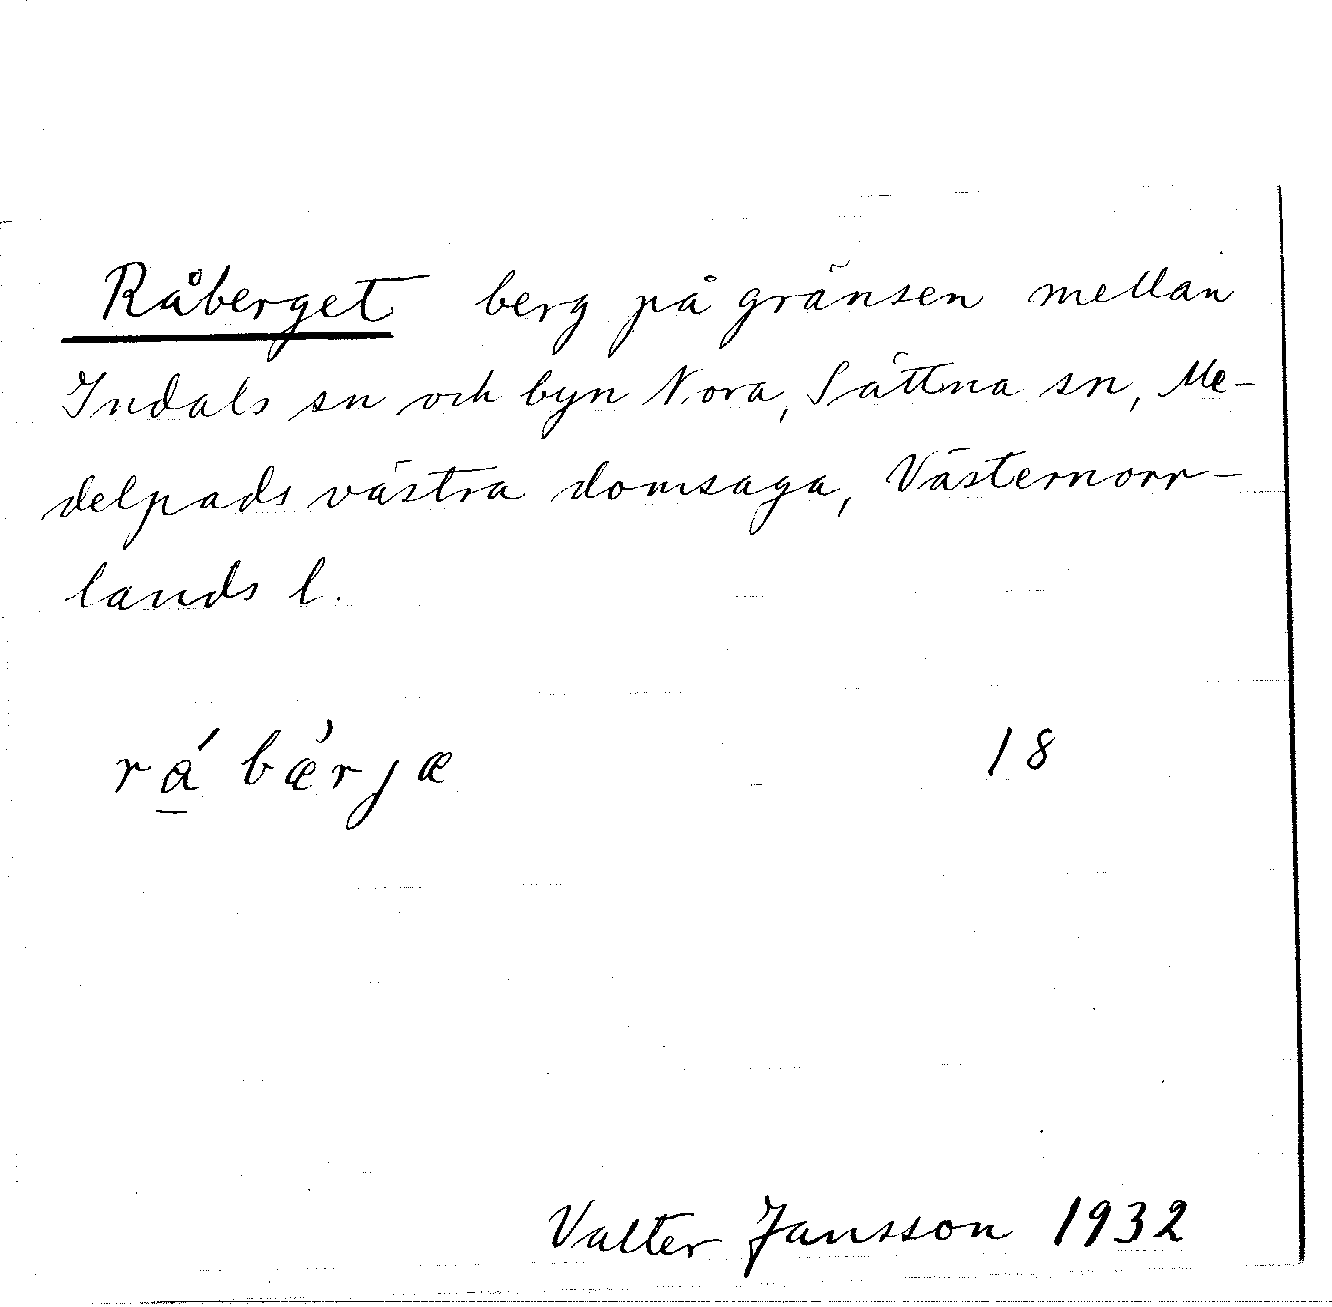 Råberget berg på gränsen mellan
Indals sn och byn Nora, Sättna sn, Me-
delpads västra domsaga, Västernorr-
lands l.
rá̱ bæ̀rjæ 18
Valter Jansson 1932